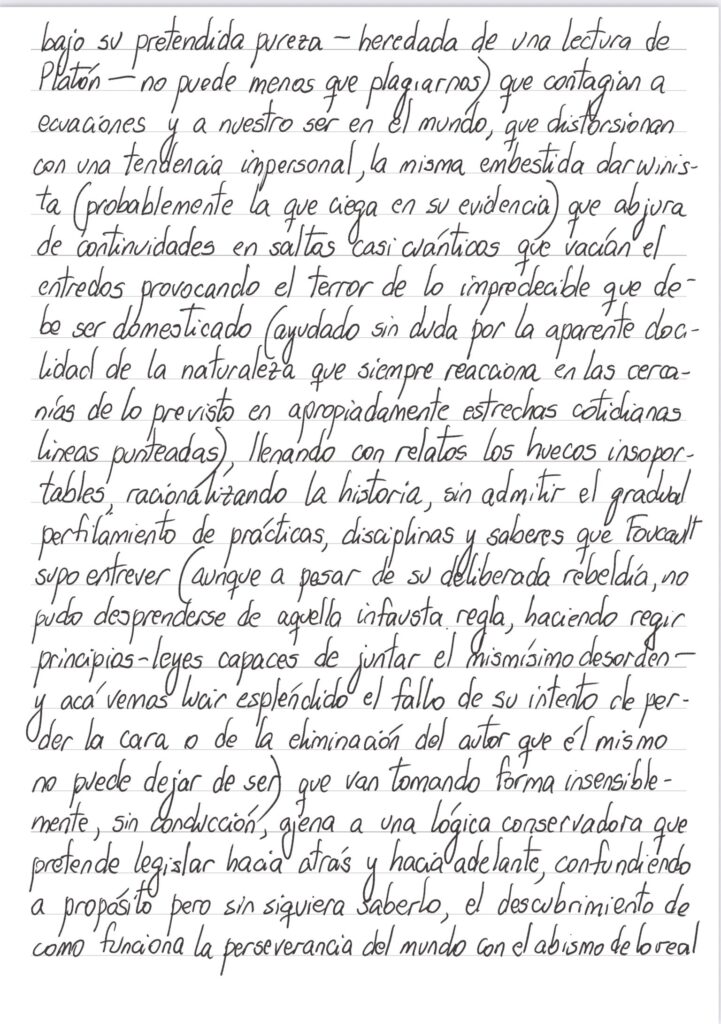 bajo su pretendida pureza – heredada de una lectura de
Platón – no puede menos que plagiarnos) que contagian a
ecuaciones y a nuestro ser en el mundo, que distorsionan
con una tendencia impersonal, la misma embestida darwinis-
ta (probablemente la que ciega en su evidencia) que abjura
de continuidades en saltos casi cuánticos que vacían el
entredos provocando el terror de lo impredecible que de-
be ser domesticado (ayudado sin duda por la aparente doci-
lidad de la naturaleza que siempre reacciona en las cerca-
nías de lo previsto en apropiadamente estrechas cotidianas
lineas punteadas), llenando con relatos los huecos insopor-
tables, racionalizando la historia, sin admitir el gradual
perfilamiento de prácticas, disciplinas y saberes que Foucault
supo entrever (aunque a pesar de su deliberada rebeldía, no
pudo desprenderse de aquella infausta regla, haciendo regir
principios-leyes capaces de juntar el mismísimo desorden –
y acá vemos lucir espléndido el fallo de su intento de per-
der la cara o de la eliminación del autor que él mismo
no puede dejar de ser) que van tomando forma insensible-
mente, sin conducción, ajena a una lógica conservadora que
pretende legislar hacia atrás y hacia adelante, confundiendo
a propósito pero sin siquiera saberlo, el descubrimiento de
como funciona la perseverancia del mundo con el abismo de lo real